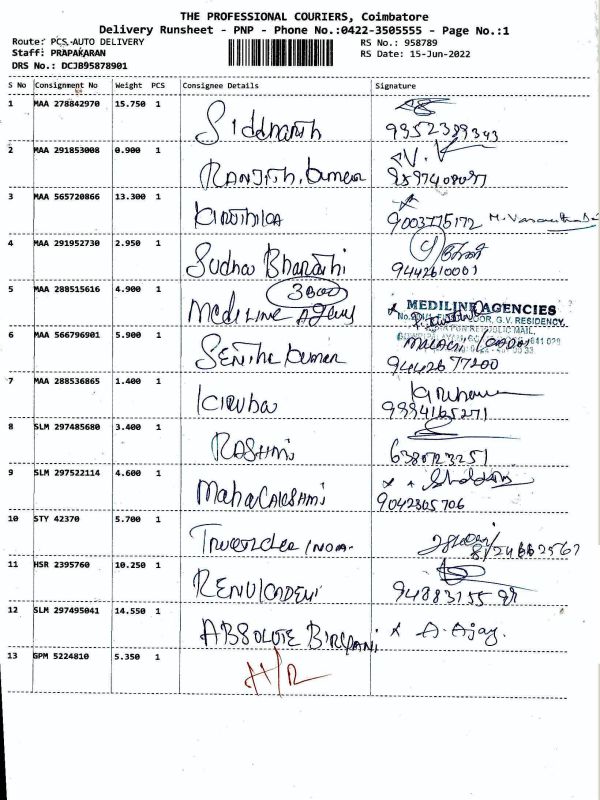 THE PROFESSIONAL COURIERS, Coimbatore
Delivery Runsheet - PNP - Phone No.:0422-3505555 - Page No.:1
Route: PCS,-AUTO DELIVERY RS No.: 958789
Staff: PRAPAKARAN RS Date: 15-Jun-2022
DRS No.: DCJB95878901
S No Consignment No Weight PCS Consignee Details Signature
1 MAA 278842970 15.750 1 Siddharth
9952389343
2 MAA 291853008 0.900 1 RANJITH. kumar
3 MAA 565720866 13.300 1 Kiruthika
9003775172
4 MAA 291952730 2.950 1 Sudha Bharathi
9442610001
5 MAA 288515616 4.900 1 3800
Mediline Agency MEDILINE AGENCIES
G.V. RESIDENCY,
6 MAA 566796901 5.900 1 Senthil kumar
9442677200
7 MAA 288536865 1.400 1 Kiruba
9994165271
8 SLM 297485680 3.400 1 RASHmi
6380723251
9 SLM 297522114 4.600 1 MahaCalashmi
9042305706
10 STY 42370 5.700 1
11 HSR 2395760 10.250 1
12 SLM 297495041 14.550 1 ABSOLUTE x A. Ajay.
13 GPM 5224810 5.350 1 H/R